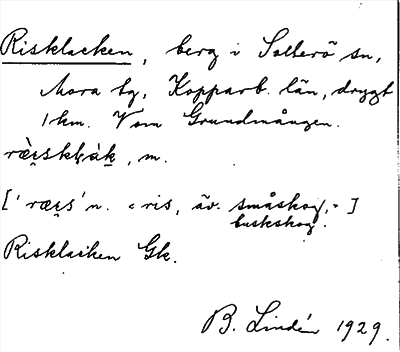 Risklacken, berg i Sollerö sn,
Mora tg, Kopparb. län, drygt
1 km. V om Grundmången.
ræ̀i̯skḷák, m.
[' ræi̯s' n. = ris, äv. småskog, - ]
buskskog.
Risklacken Gk.
B. Lindén 1929.